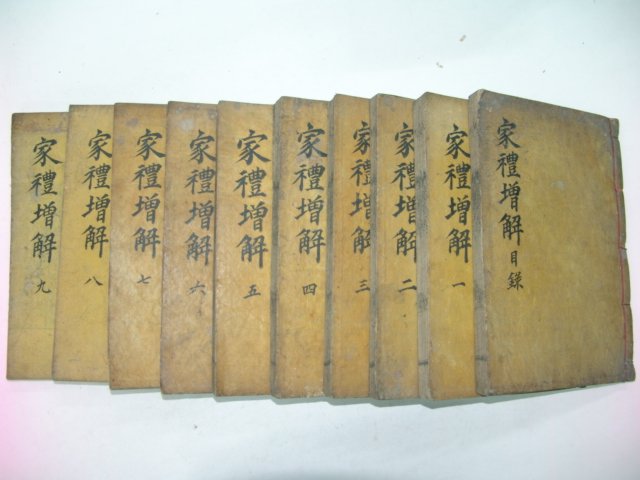 家禮增解 目錄
家禮增解 一
家禮增解 二
家禮增解 三
家禮增解 四
家禮增解 五
家禮增解 六
家禮增解 七
家禮增解 八
家禮增解 九